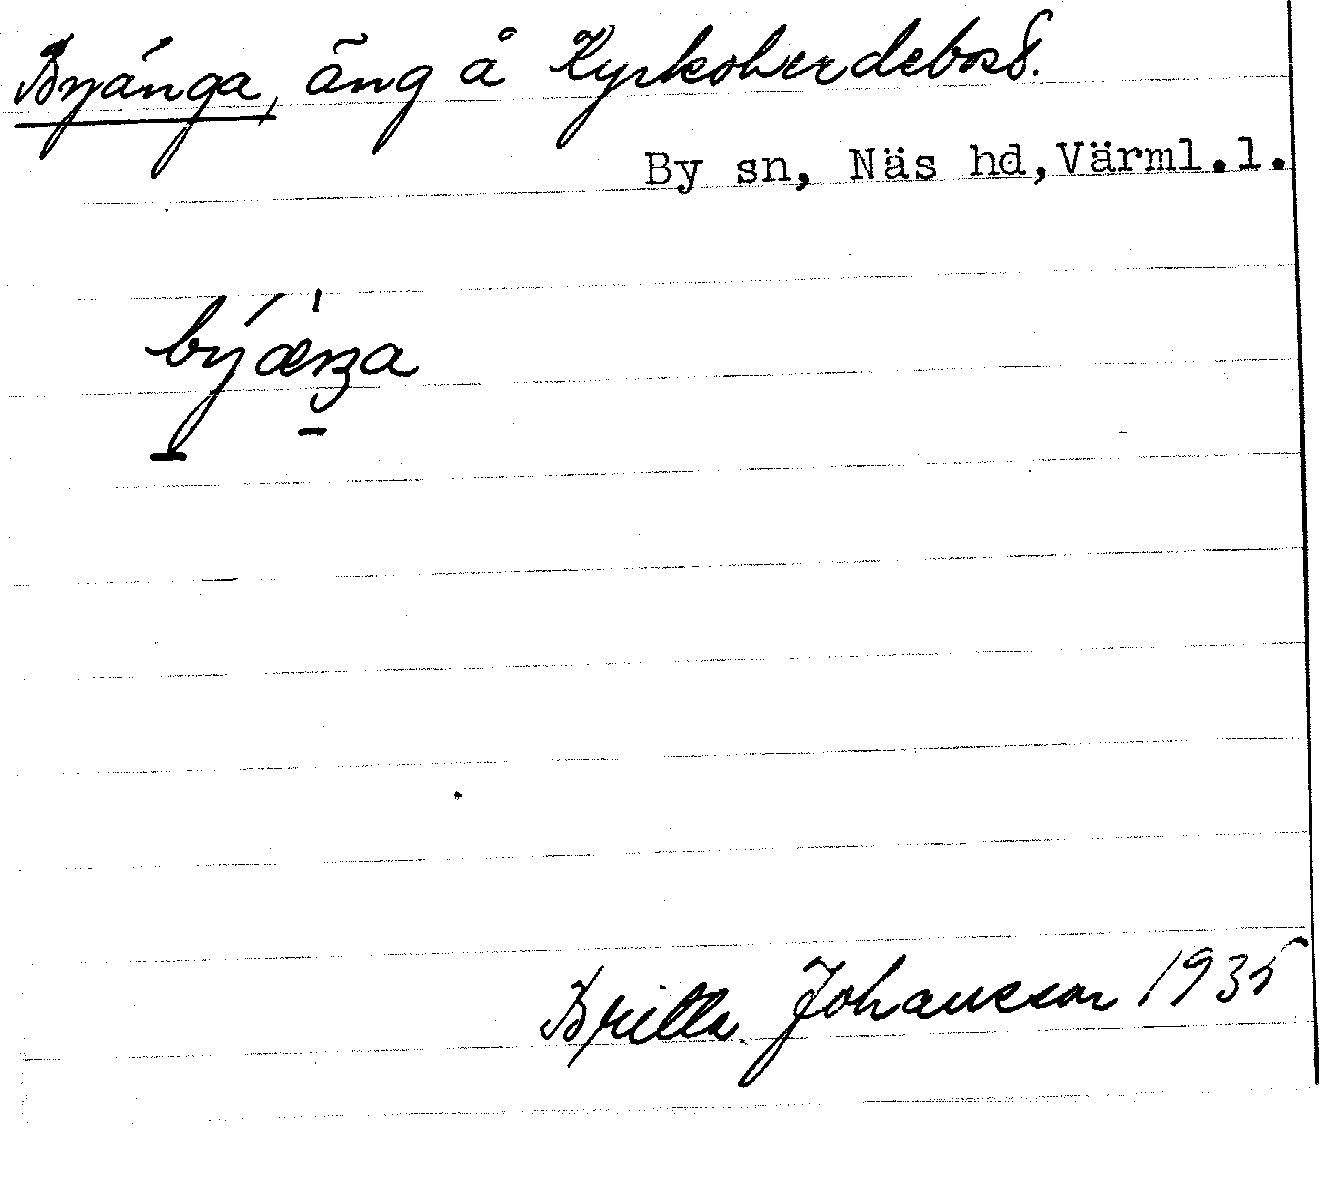 Byänga, äng å Kyrkoherdebost.
By sn, Näs hd, Värml.l.
býæŋa
Britta Johansson 1935